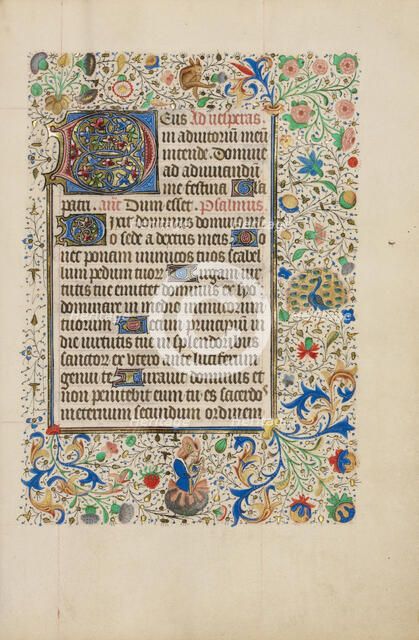 DEus Ad vesperas.
in adiutoriū meū
intende. Domine
ad adiuuandū
me festina Gla
patri. ant. Dum esset. Psalmus
Dixit dominus domino me
o sede a dextris meis Do
nec ponam inimicos tuos scabel
lum pedum tuorꝝ Virgam uir
tutis tue emittet dominus ex syō
dominare in medio inimicorum
tuorum Tecum principium in
die uirtutis tue in splendoribus
sanctorꝝ ex utero ante luciferum
genui te Iurauit dominus et
non penitebit eum tu es sacerdo
in eternum secundum ordinem